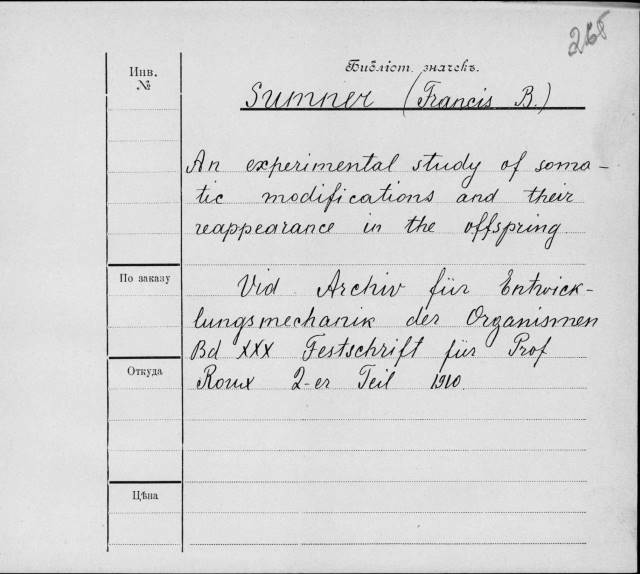 268
Инв.
№
Библіот. значекъ.
Sumner (Francis B.)
An experimental study of soma-
tic modifications and their
reappearance in the offspring.
По заказу
Vid Archiv für Entwick-
lungsmechanik der Organismen
Bd XXX Festschrift für Prof
Откуда
Roux 2-er Teil 1910.
Цѣна